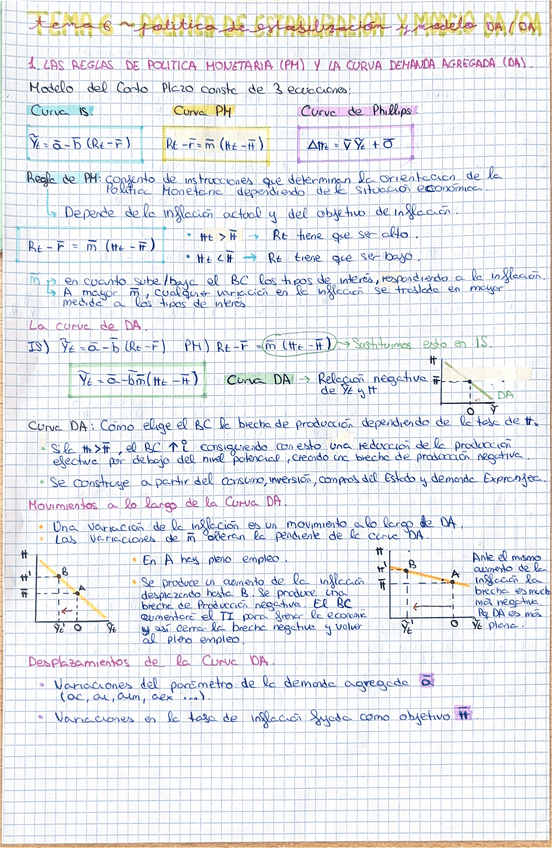 tema 6 ~ política de estabilización y modelo OA/DA
1. LAS REGLAS DE POLITICA MONETARIA (PM) Y LA CURVA DEMANDA AGREGADA (DA).
Modelo del Corto Plazo consta de 3 ecuaciones:
Curva IS Curva PM Curva de Phillips
Ỹt = ā - b̄ (Rt - r̄) Rt - r̄ = m̄ (πt - π̄) Δπt = v̄ Ỹt + ō
Regla de PM: conjunto de instrucciones que determinan la orientación de la
Política Monetaria dependiendo de la situación económica.
↳ Depende de la inflación actual y del objetivo de inflación.
Rt - r̄ = m̄ (πt - π̄)
• πt > π̄ → Rt tiene que ser alto.
• πt < π̄ → Rt tiene que ser bajo.
m̄ → en cuanto sube/baja el BC los tipos de interés, respondiendo a la inflación.
↳ A mayor m̄, cualquier variación en la inflación se traslada en mayor
medida a los tipos de interés
La curva de DA.
IS) Ỹt = ā - b̄ (Rt - r̄) PM) Rt - r̄ = m̄ (πt - π̄) → Sustituimos esto en IS.
Ỹt = ā - b̄m̄ (πt - π̄) Curva DA → Relación negativa
de Ỹt y π
π
π̄
DA
0 Ỹ
Curva DA: Cómo elige el BC la brecha de producción dependiendo de la tasa de π.
• Si la πt > π̄, el BC ↑ i consiguiendo con esto una reducción de la producción
efectiva por debajo del nivel potencial, creando una brecha de producción negativa.
• Se construye a partir del consumo, inversión, compras del Estado y demanda Extranjera.
Movimientos a lo largo de la Curva DA.
• Una variación de la inflación es un movimiento a lo largo de DA.
• Las variaciones de m̄ alteran la pendiente de la curva DA.
π
π'
π̄
B
A
Ỹt' 0 Ỹt
• En A hay pleno empleo.
• Se produce un aumento de la inflación
desplazando hasta B. Se produce una
brecha de Producción negativa. El BC
aumentará el TI para frenar la economía
y así cerrar la brecha negativa y volver
al pleno empleo.
π
π'
π̄
B
A
Ỹt' 0 Ỹt
Ante el mismo
aumento de la
inflación la
brecha es mucho
más negativa
Pq DA es más
plana.
Desplazamientos de la Curva DA.
• Variaciones del parámetro de la demanda agregada ā
(ac, ai, aim, aex ...).
• Variaciones en la tasa de inflación fijada como objetivo π̄.